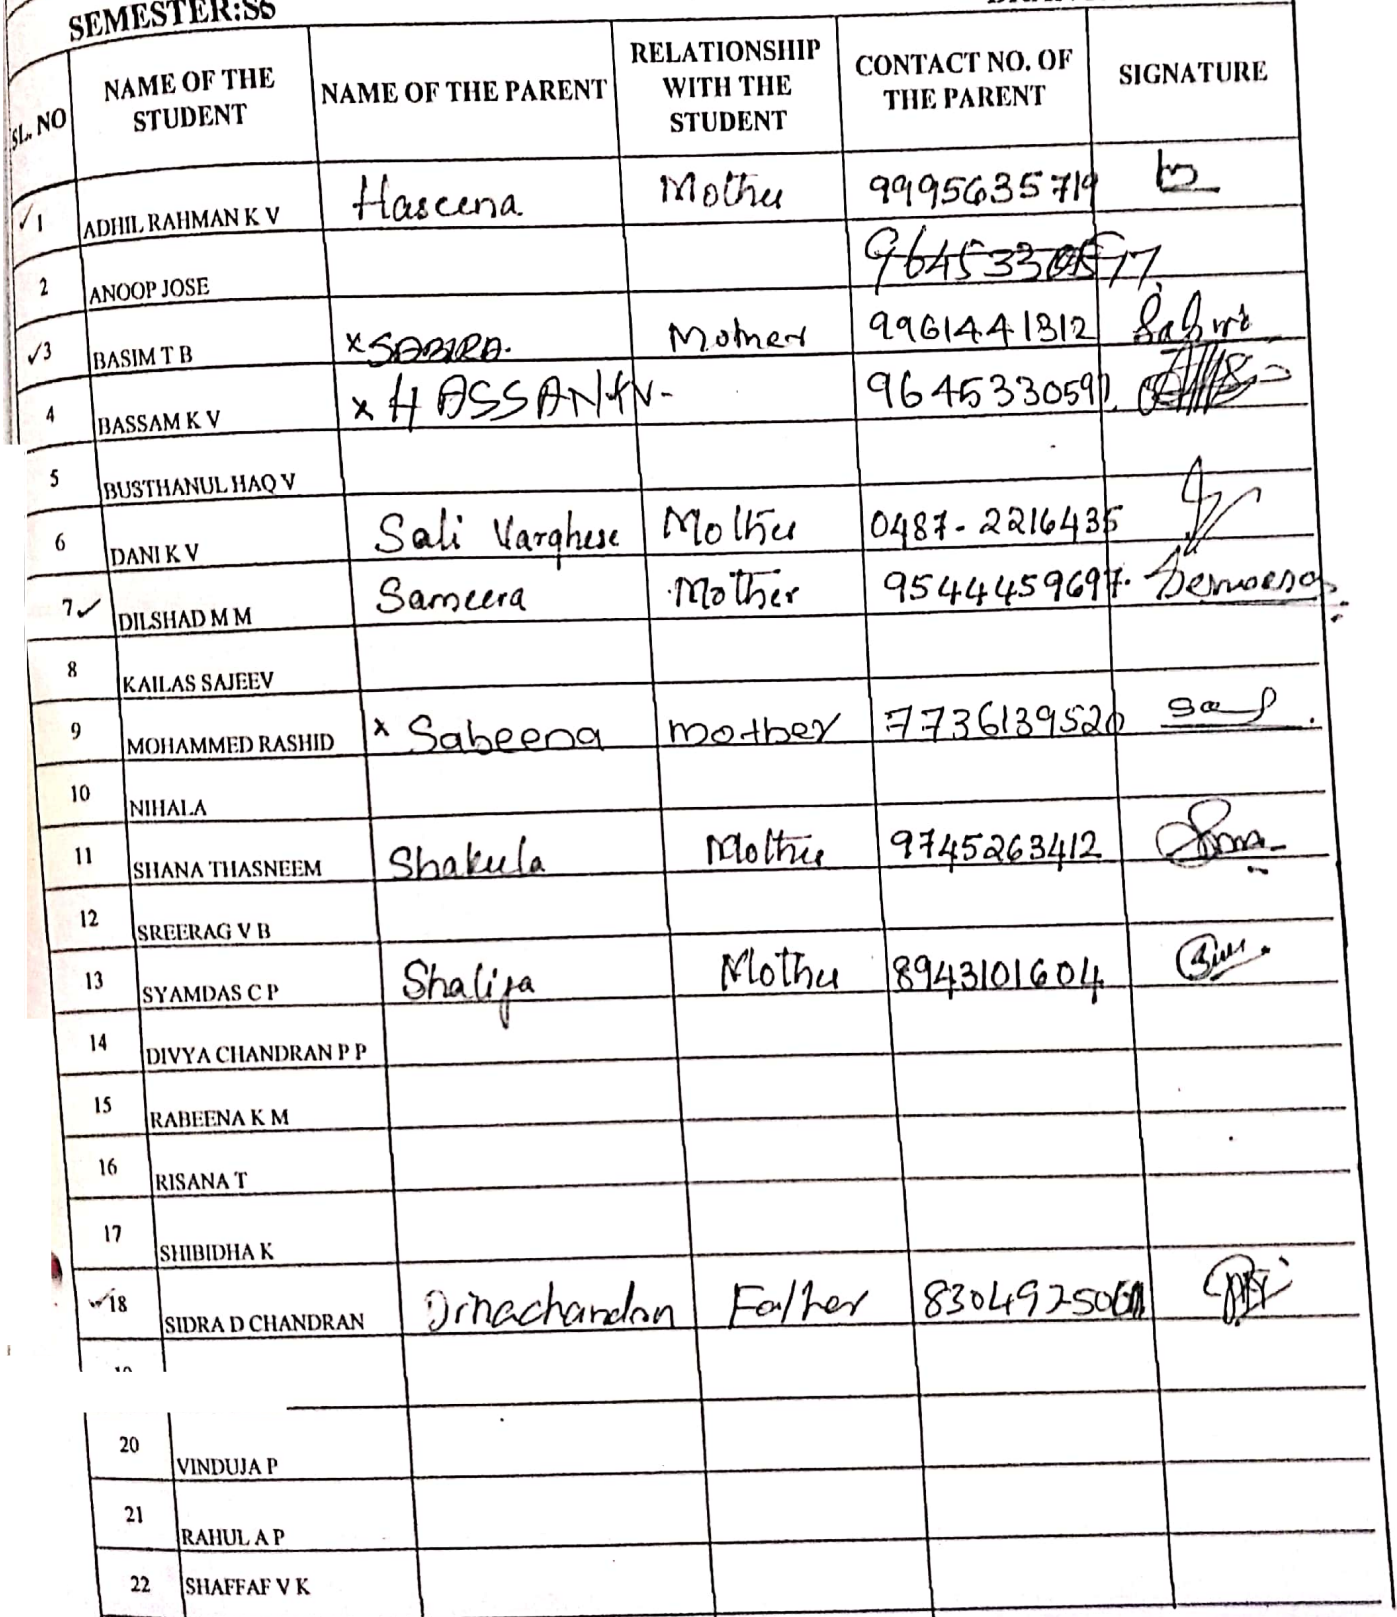 SEMESTER:S6
SL. NO NAME OF THE STUDENT NAME OF THE PARENT RELATIONSHIP WITH THE STUDENT CONTACT NO. OF THE PARENT SIGNATURE
1 ADHIL RAHMAN K V Haseena Mother 9995635719
2 ANOOP JOSE
3 BASIM T B x SABIRA. Mother 9961441312
4 BASSAM K V x HASSAN K V- 9645330597
5 BUSTHANUL HAQ V
6 DANI K V Sali Varghese Mother 0487-2216435
7 DILSHAD M M Sameera Mother 9544459697.
8 KAILAS SAJEEV
9 MOHAMMED RASHID x Sabeena mother 7736139520
10 NIHALA
11 SHANA THASNEEM Shakula Mother 9745263412
12 SREERAG V B
13 SYAMDAS C P Shalija Mother 8943101604
14 DIVYA CHANDRAN P P
15 RABEENA K M
16 RISANA T
17 SHIBIDHA K
18 SIDRA D CHANDRAN Father
20 VINDUJA P
21 RAHUL A P
22 SHAFFAF V K